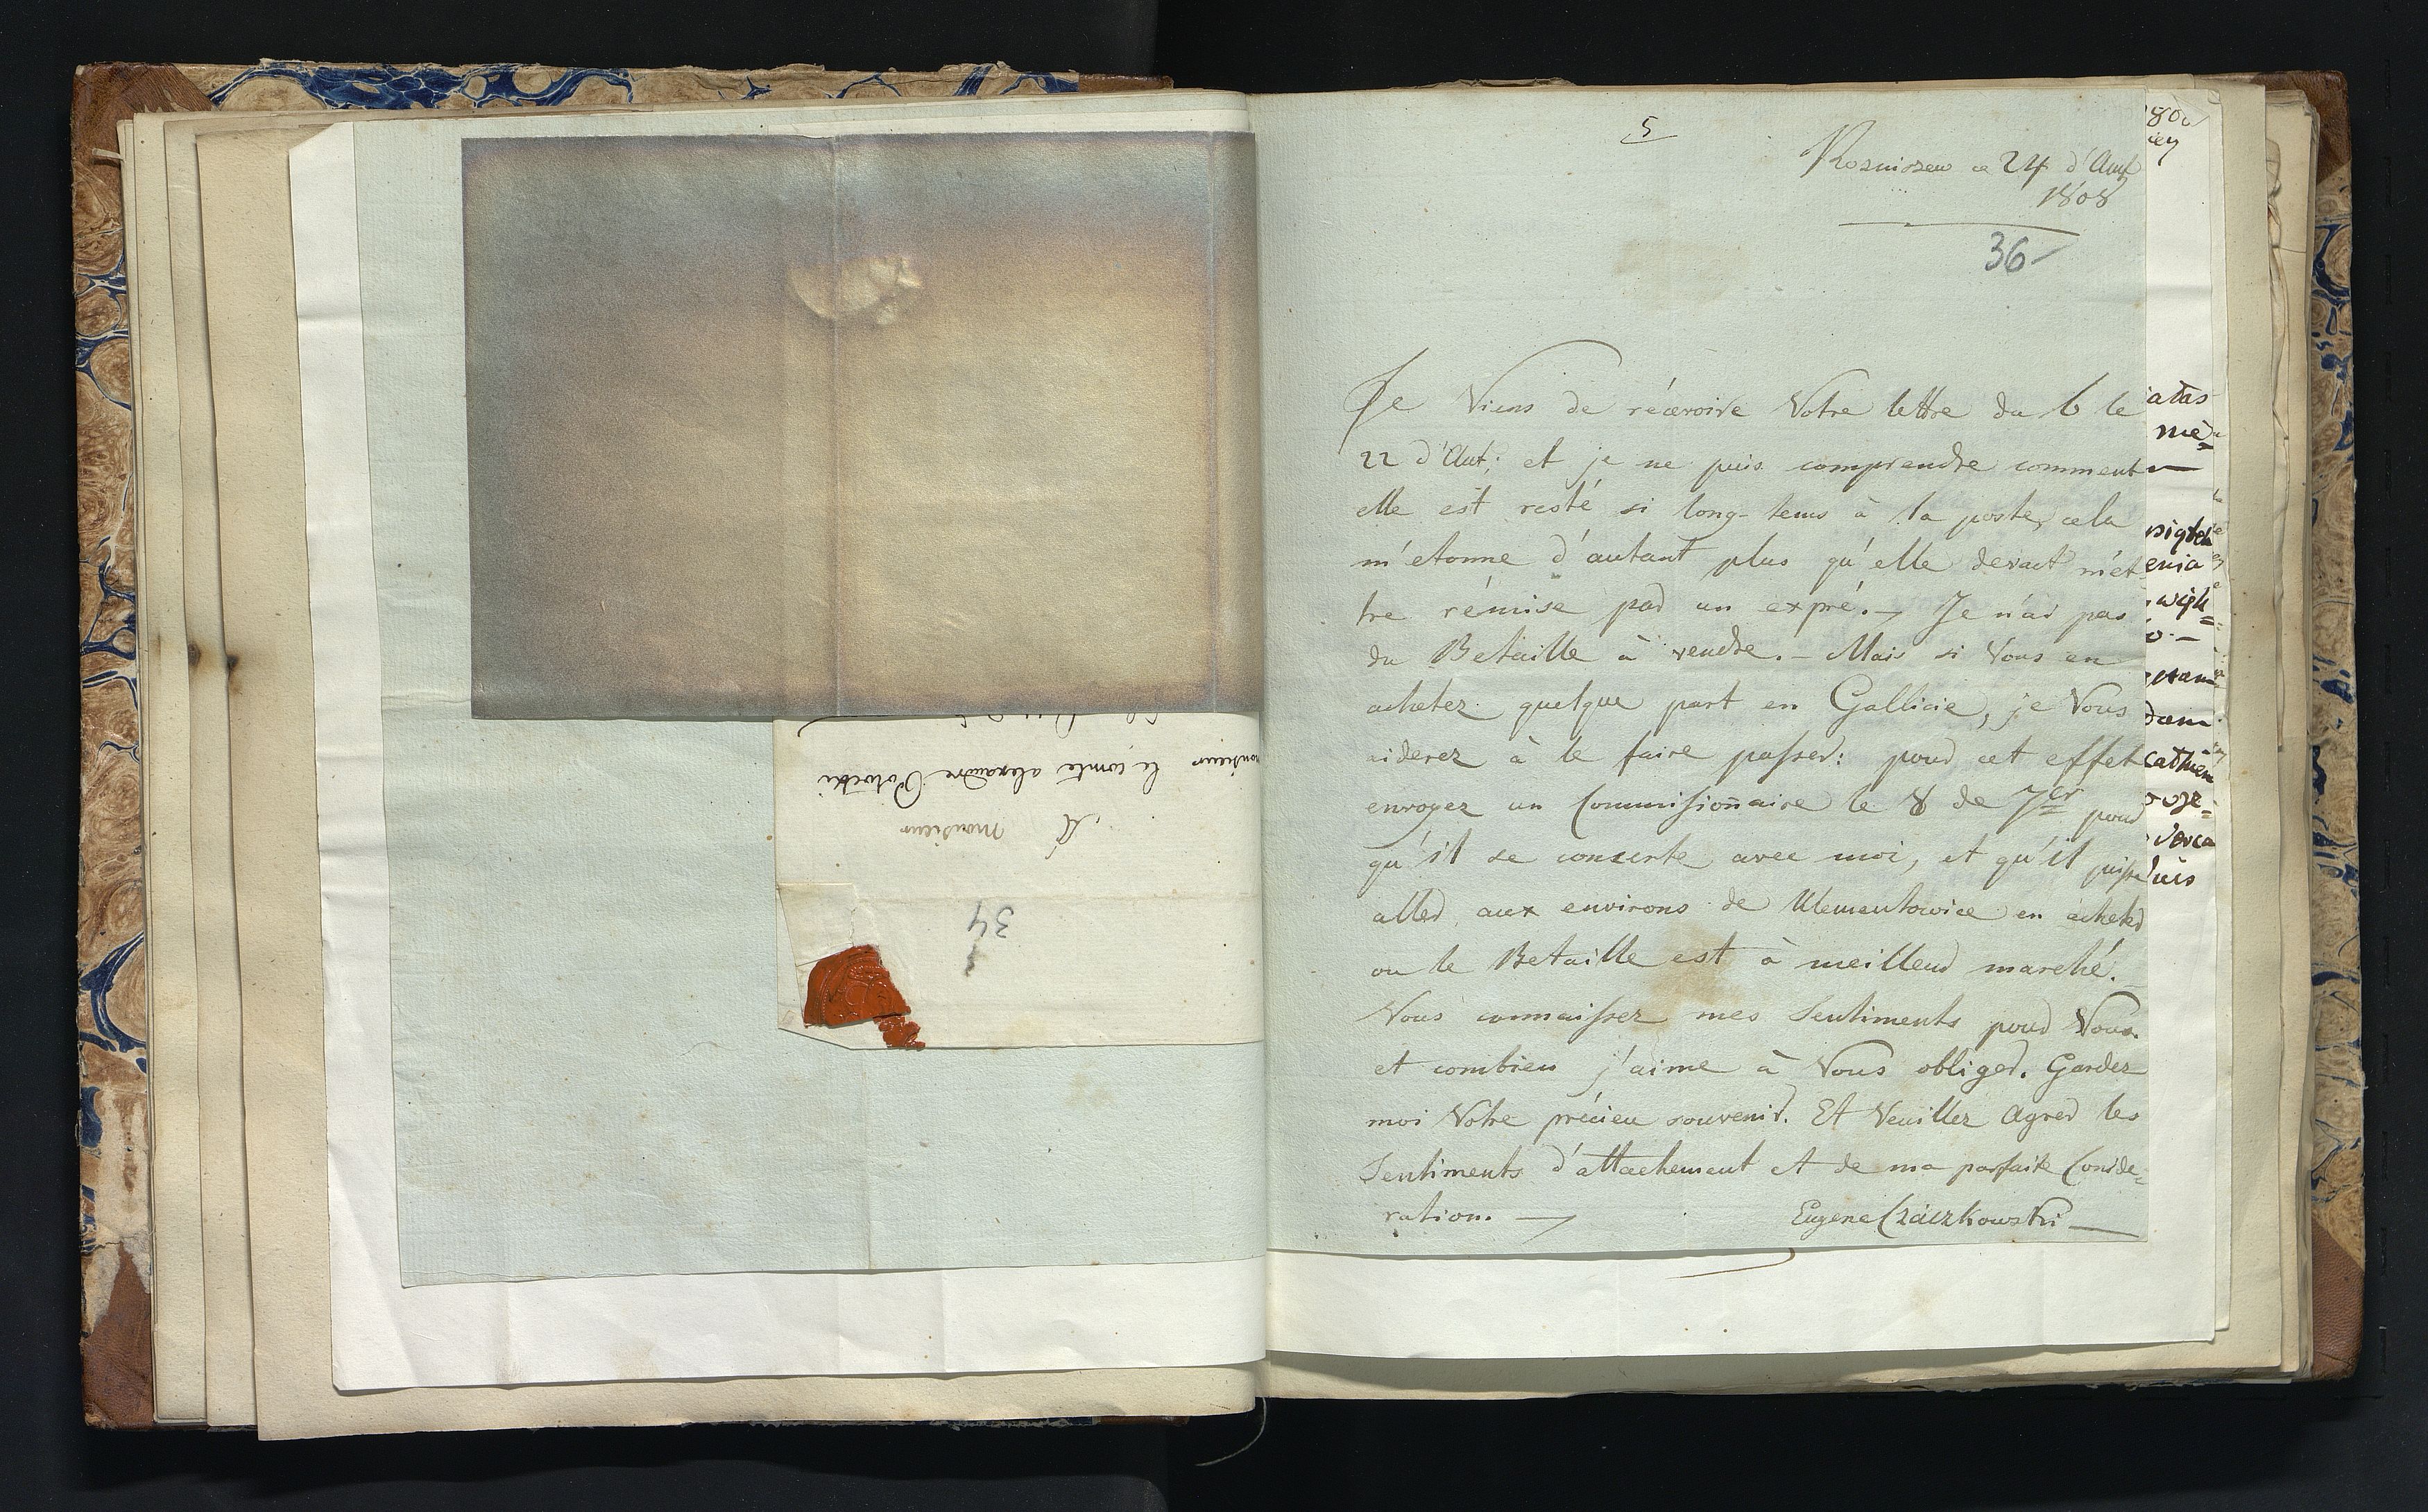 Monsieur
monsieur le comte alexandre Potocki
34
5
ce 24 d'Aut
1808
36
Je Viens de récevoire Votre lettre du 6 le
22 d'Aut; et je ne puis comprendre comment
elle est resté si long-tems à la poste, cela
m'etonne d'autant plus qu'elle devait m'et
tre rémise par un expré. Je n'ai pas
du Betaille à vendre. – Mais si Vous en
achetez quelque part en Gallicie, je Vous
aiderez à le faire passer: pour cet effet
envoyez un Commissionaire le 8 de 7er pour
qu'il se conserte avec moi, et qu'il puisse
aller aux environs de Klementowice en acheter
ou le Betaille est à meilleur marché.
Vous connaissez mes Sentiments pour Vous
et combien j'aime à Vous obliger. Gardez
moi Votre précieu souvenir. Et Veuillez Agrer les
Sentiments d'attachement et de ma parfaite Conside=
ration. — Eugene Czáczkowski